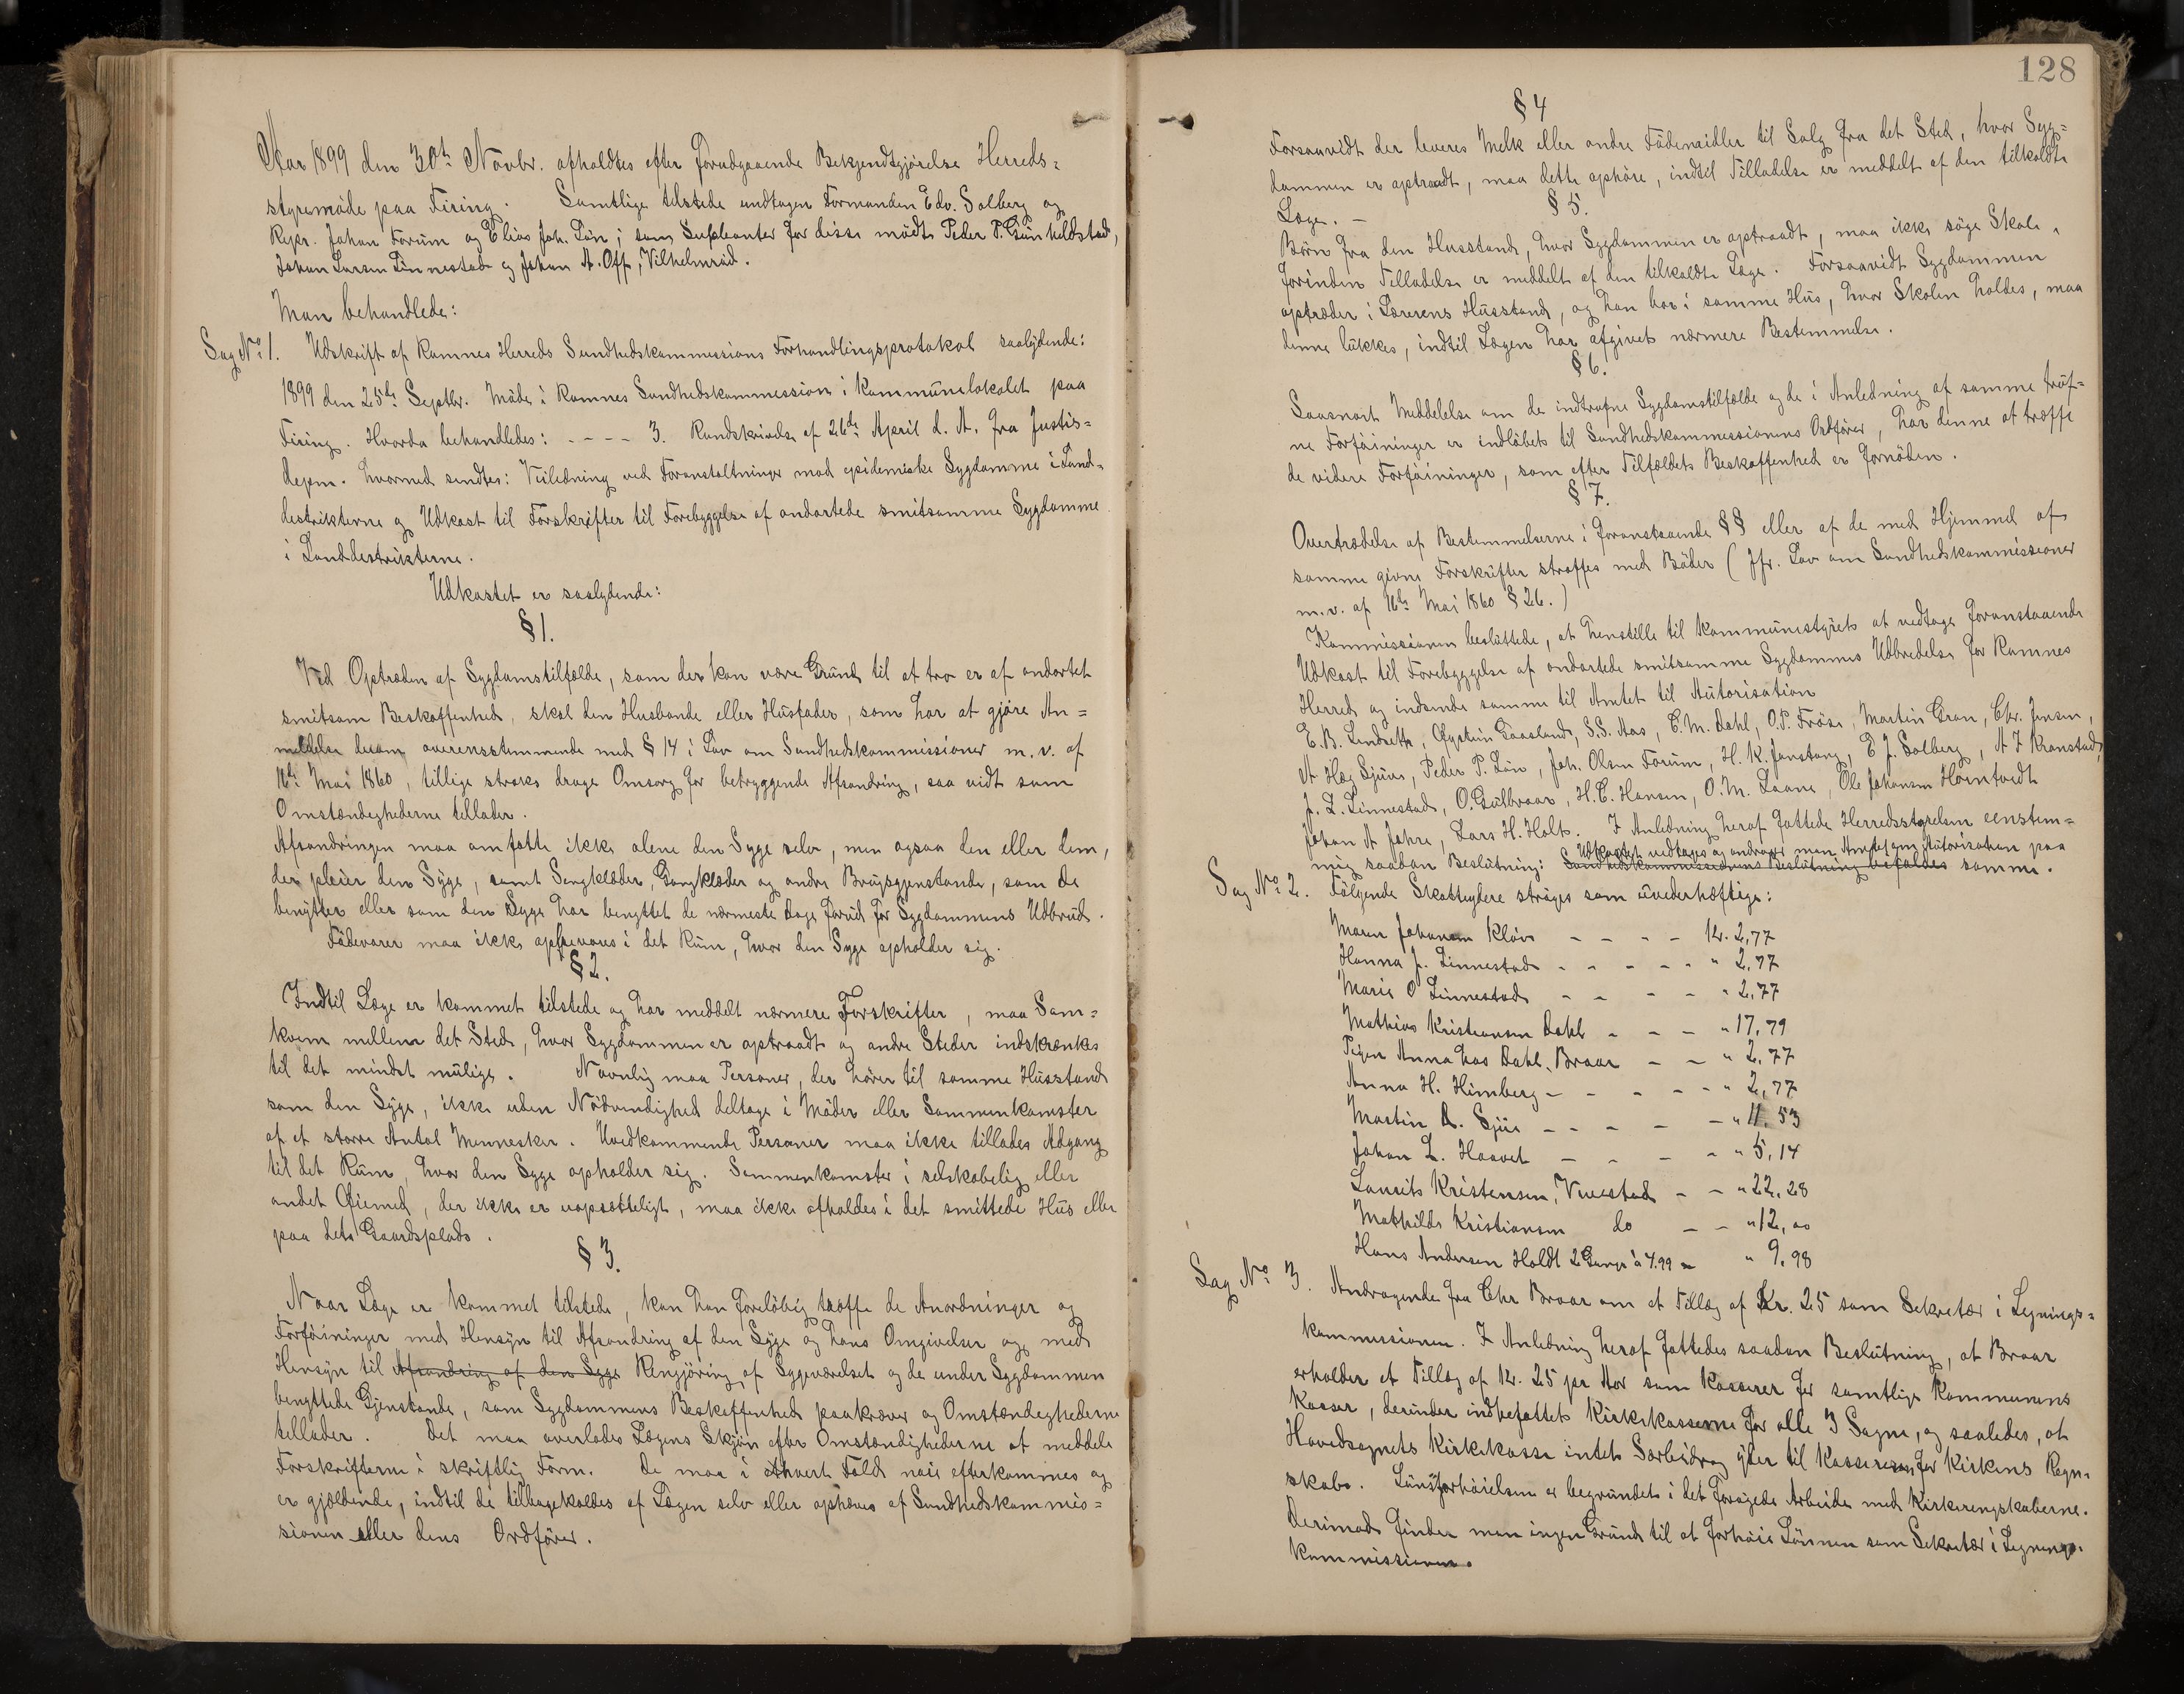 Aar 1899 den 30te Novbr. afholdtes efter forudgaaende Bekjendtgjörelse Herreds=
styremöde paa Firing. Samtlige tilstede undtagen Formanden Edv. Solberg og
Repr. Johan Forum og Elias Joh. Lön; som Supleanter for disse mödte Peder P. Gunhildstad,
Johan Larsen Linnestad og Johan A. Off, Vilhelmröd.
Man behandlede:
Sag No 1. Udskrift af Ramnes Herreds Sundhedskommissions Forhandlingsprotokol saalydende:
1899 den 25de Septbr. Möde i Ramnes Sundhedskommission i Kommunelokalet paa
Firing. Hvorda behandledes: - - - - 3. Rundskrivelse af 26de April d. A. fra Justis=
depm. hvormed sendtes: Veiledning ved Foranstaltninger mod epidemiske Sygdomme i Land=
destrikterne og Udkast til Forskrifter til Forebyggelse af ondartede smitsomme Sygdomme
i Landdestrikterne.
Udkastet er saalydende:
§ 1.
Ved Optræden af Sygdomstilfælde, som der kan være Grund til at tro er af ondartet
smitsom Beskaffenhed, skal den Husbonde eller Husfader, som har at gjöre An=
meldelse derom overensstemmende med § 14 i Lov om Sundhedskommissioner m. v. af
16de Mai 1860, tillige straks drage Omsorg for betryggende Afsondring, saa vidt som
Omstændeghederne tillader.
Afsondringen maa omfatte ikke alene den Syge selv, men ogsaa den eller dem,
der pleier den Syge, samt Sengklæder, Gangklæder og andre Brugsgjenstande, som de
benytter eller som den Syge har benyttet de nærmeste Dage forud for Sygdommens Udbrud.
Födevarer maa ikke opbevares i det Rum, hvor den Syge opholder sig.
§ 2.
Indtil Læge er kommet tilstede og har meddelt nærmere Forskrifter, maa Sam=
kvem mellem det Sted, hvor Sygdommen er optraadt og andre Steder indskrænkes
til det mindst mulige. Navnlig maa Personer, der hörer til samme Husstand
som den Syge, ikke uden Nödvendighed deltage i Möder eller Sammenkomster
af et större Antal Mennesker. Uvedkommende Personer maa ikke tillades Adgang
til det Rum, hvor den Syge opholder sig. Sammenkomster i selskabelig eller
andet Øiemed, der ikke er uopsætteligt, maa ikke afholdes i det smittede Hus eller
paa dets Gaardsplads.
§ 3.
Naar Læge er kommet tilstede, kan han forelöbig træffe de Anordninger og
Forföininger med Hensyn til Afsondring af den Syge og hans Omgivelser og med
Hensyn til Afsondring af den Syge Rengjöring af Sygeværelset og de under Sygdommen
benyttede Gjenstande, som Sygdommens Beskaffenhed paakræver og Omstændeghederne
tillader. Det maa overlades Lægens Skjön efter Omstændighederne at meddele
Forskrifterne i skriftlig Form. De maa i ethvert Fald nöie efterkommes og
er gjældende, indtil de tilbagekaldes af Lægen selv eller ophæves af Sundhedskommis=
sionen eller dens Ordförer.
128
§ 4
Forsaavidt der leveres Melk eller andre Födemidler til Salg fra det Sted, hvor Syg=
dommen er optraadt, maa dette ophöre, indtil Tilladelse er meddelt af den tilkaldte
Læge. -
§ 5.
Börn fra den Husstand, hvor Sygdommen er optraadt, maa ikke söge Skole,
forinden Tilladelse er meddelt af den tilkaldte Læge. Forsaavidt Sygdommen
optræder i Lærerens Husstand, og han bor i samme Hus, hvor Skolen holdes, maa
denne lukkes, indtil Lægen har afgivet nærmere Bestemmelse.
§ 6.
Saasnart Meddelelse om de indtrufne Sygdomstilfælde og de i Anledning af samme truf=
ne Forföininger er indlöbet til Sundhedskommissionens Ordförer, har denne at træffe
de videre Forföininger, som efter Tilfældets Beskaffenhed er fornöden.
§ 7.
Overtrædelse af Bestemmelserne i foranstaaende §§ eller af de med Hjemmel af
samme givne Forskrifter straffes med Böder (Jfr. Lov om Sundhedskommissioner
m.v. af 16de Mai 1860 § 26.)
Kommissionen besluttede, at henstille til Kommunestyret at vedtage foranstaaende
Udkast til Forebyggelse af ondartede smitsomme Sygdommes Udbredelse for Ramnes
Herred og indsende samme til Amtet til Autorisation
E. B. Lindseth, Øystein Gaasland, S.S. Aas, C.M. Dahl, O.P. Fröse, Martin Gran, Chr. Jensen,
A Hæg Sjuve, Peder P. Lön, Joh. Olsen Forum, H. K. Fonstang, E J. Solberg, A I Kronstad,
J. L. Linnestad, O. Gulbraar, H.C. Hansen, O.M. Laane, Ole Johansen Horntvedt
Johan A Jahre, Lars H. Holt. I Anledning heraf fattede Herredsstyrelsen eenstem=
mig saadan Beslutning: Sundhedskommissionens Beslutning befaldes samme.
Udkastet vedtages og andrager man Amtet om Autorisation paa
Sag No 2. Fölgende Skatteydere ströges som uvederhæftige:
Maren Johansen Klöv - - - - Kr. 2,77
Hanna J. Linnestad - - - - - " 2,77
Marie O Linnestad - - - - " 2,77
Mathias Kristiansen Dahl - - - " 17,79
Pigen Anna hos Dahl, Braar - - " 2,77
Anna H. Himberg - - - - - " 2,77
Martin D. Sjue - - - - - " 11.53
Johan L. Haavet - - - - " 5,14
Laurits Kristensen, Vivestad - - " 22,28
Mathilde Kristiansen do - - " 12,00
Hans Andersen Holdt 2 Gange à 4.99 - " 9,98
Sag No 3. Andragende fra Chr Braar om et Tillæg af Kr. 25 som Sekretær i Legnings=
kommissionen. I Anledning heraf fattedes saadan Beslutning, at Braar
erholder et Tillæg af Kr. 25 pr Aar som Kasserer for samtlige Kommunens
Kasser, derunder indbefattet Kirkekasserne for alle 3 Sogne, og saaledes, at
Hovedsognets Kirkekasse intet Særbidrag yder til Kassereren for Kirkens Regn=
skab. Lönsforhöielsen er begrundet i det forögede Arbeide med Kirkeregnskaberne.
Derimod finder man ingen Grund til at forhöie Lönnen som Sekretær i Legnings=
kommissionen.